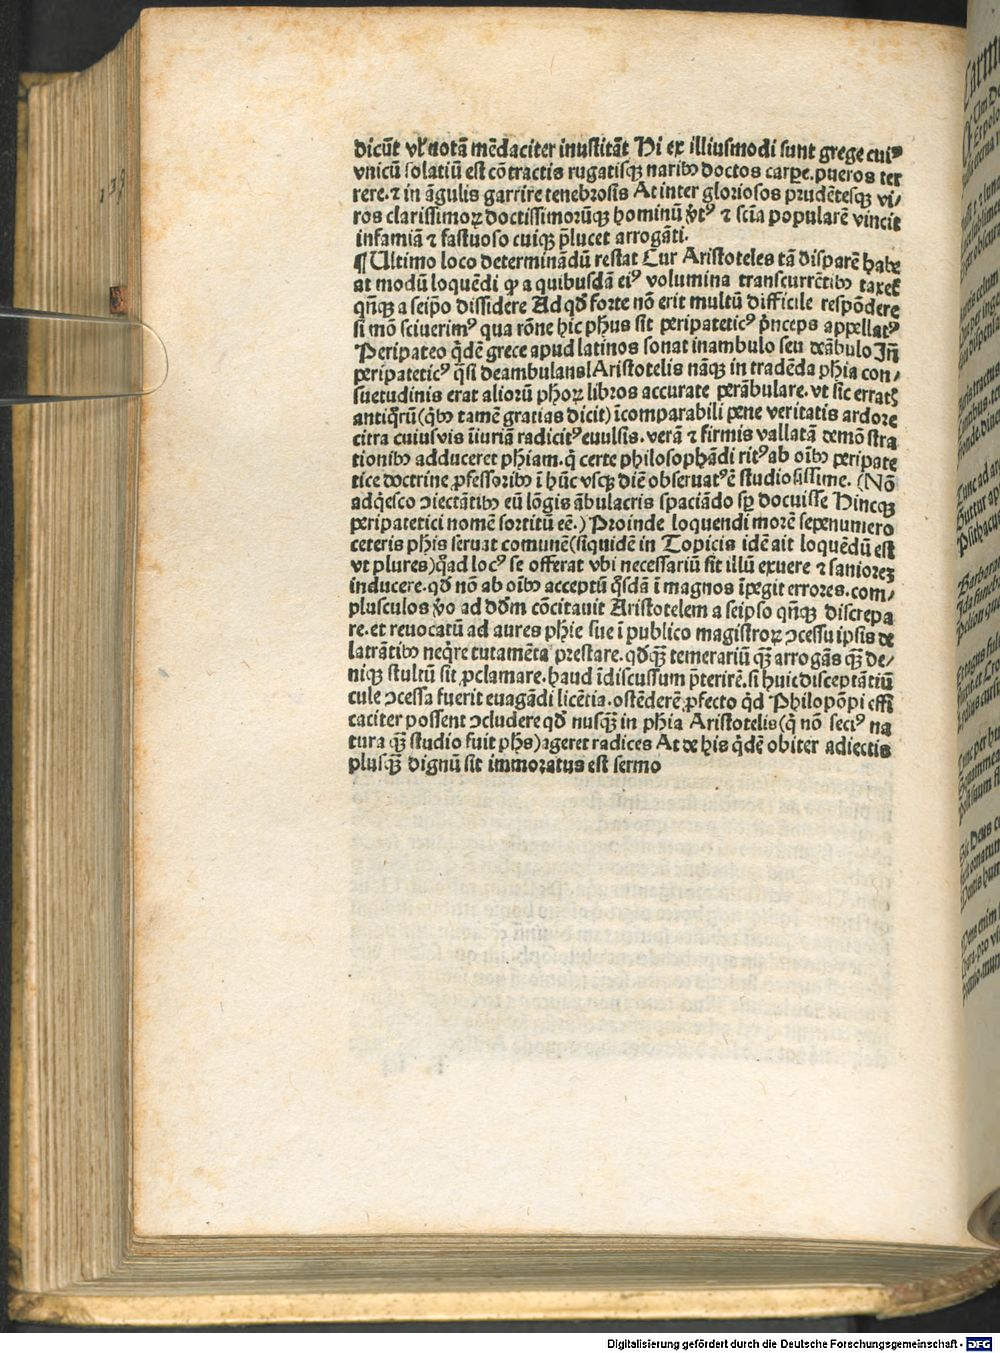 dicūt vł notā mēdaciter inustitāt Hi ex illiusmodi sunt grege cuiꝰ
vnicū solatiū est cōtractis rugatisqꝫ naribꝰ doctos carpe. pueros ter
rere. ⁊ in āgulis garrire tenebrosis At inter gloriosos prudētesqꝫ vi/
ros clarissimoꝝ doctissimorūqꝫ hominū ⁊ scīa popularē vincit
infamiā ⁊ fastuoso cuiqꝫ p̄lucet arrogāti.
¶ Ultimo loco determinādū restat Cur Aristoteles tā disparē habe
at modū loquēdi ꝙ a quibusdā eiꝰ volumina transcurrētibꝰ
qn̄qꝫ a seip̄o dissidere Ad qđ forte nō erit multū difficile respōdere
si mō sciuerimꝰ qua rōne hic ph̄us sit peripateticꝰ p̄nceps appellatꝰ
Peripateo q̇dē grece apud latinos sonat inambulo seu deābulo Iñ
peripateticꝰ q̄si deambulans Aristotelis nāqꝫ in tradēda ph̄ia con/
suetudinis erat alioꝝ ph̄oꝝ libros accurate perābulare. vt sic errat
antiq̇rū (q̇bꝰ tamē gratias dicit) īcomparabili pene veritatis ardore
citra cuiusvis īiuriā radicitꝰ euulsis. verā ⁊ firmis vallatā demō stra
tionibꝰ adduceret ph̄iam. q̄ certe philosophādi ritꝰ ab oībꝰ peripate
tice doctrine ꝓfessoribꝰ ī hūc vsqꝫ diē obseruatꝰ ē studiosissime. (Nō
adq̇esco ↄiectātibꝰ eū lōgis ābulacris spaciādo sꝑ docuisse Hincqꝫ
peripatetici nomē sortitū eē.) Proinde loquendi morē sepenumero
ceteris ph̄is seruat comunē (siquidē in Topicis idē ait loquēdū est
vt plures) q̇ad locꝰ se offerat vbi necessariū sit illū exuere ⁊ saniorē
inducere. qđ nō ab oībꝰ acceptū q̇sdā ī magnos īpegit errores. com/
plusculos v̇o ad cōcitauit Aristotelem a seipso qn̄qꝫ discrepa
re. et reuocatū ad aures ph̄ie sue ī publico magistroꝝ ↄcessu ipsis de
latrātibꝰ neq̇re tutamēta prestare. qđ qꝫ temerariū qꝫ arrogās qꝫ de/
niqꝫ stultū sit ꝓclamare. haud īdiscussum p̄terirē. si huic disceptātiū
cule ↄcessa fuerit euagādi licētia. ostēderē ꝓfecto q̇d Philopōpi effi
caciter possent ↄcludere qđ nusqꝫ in ph̄ia Aristotelis (q̇ nō seciꝰ na
tura qꝫ studio fuit ph̄s) ageret radices At de his q̇dē obiter adiectis
plusqꝫ dignū sit immoratus est sermo
139
Digitalisierung gefördert durch die Deutsche Forschungsgemeinschaft - DFG